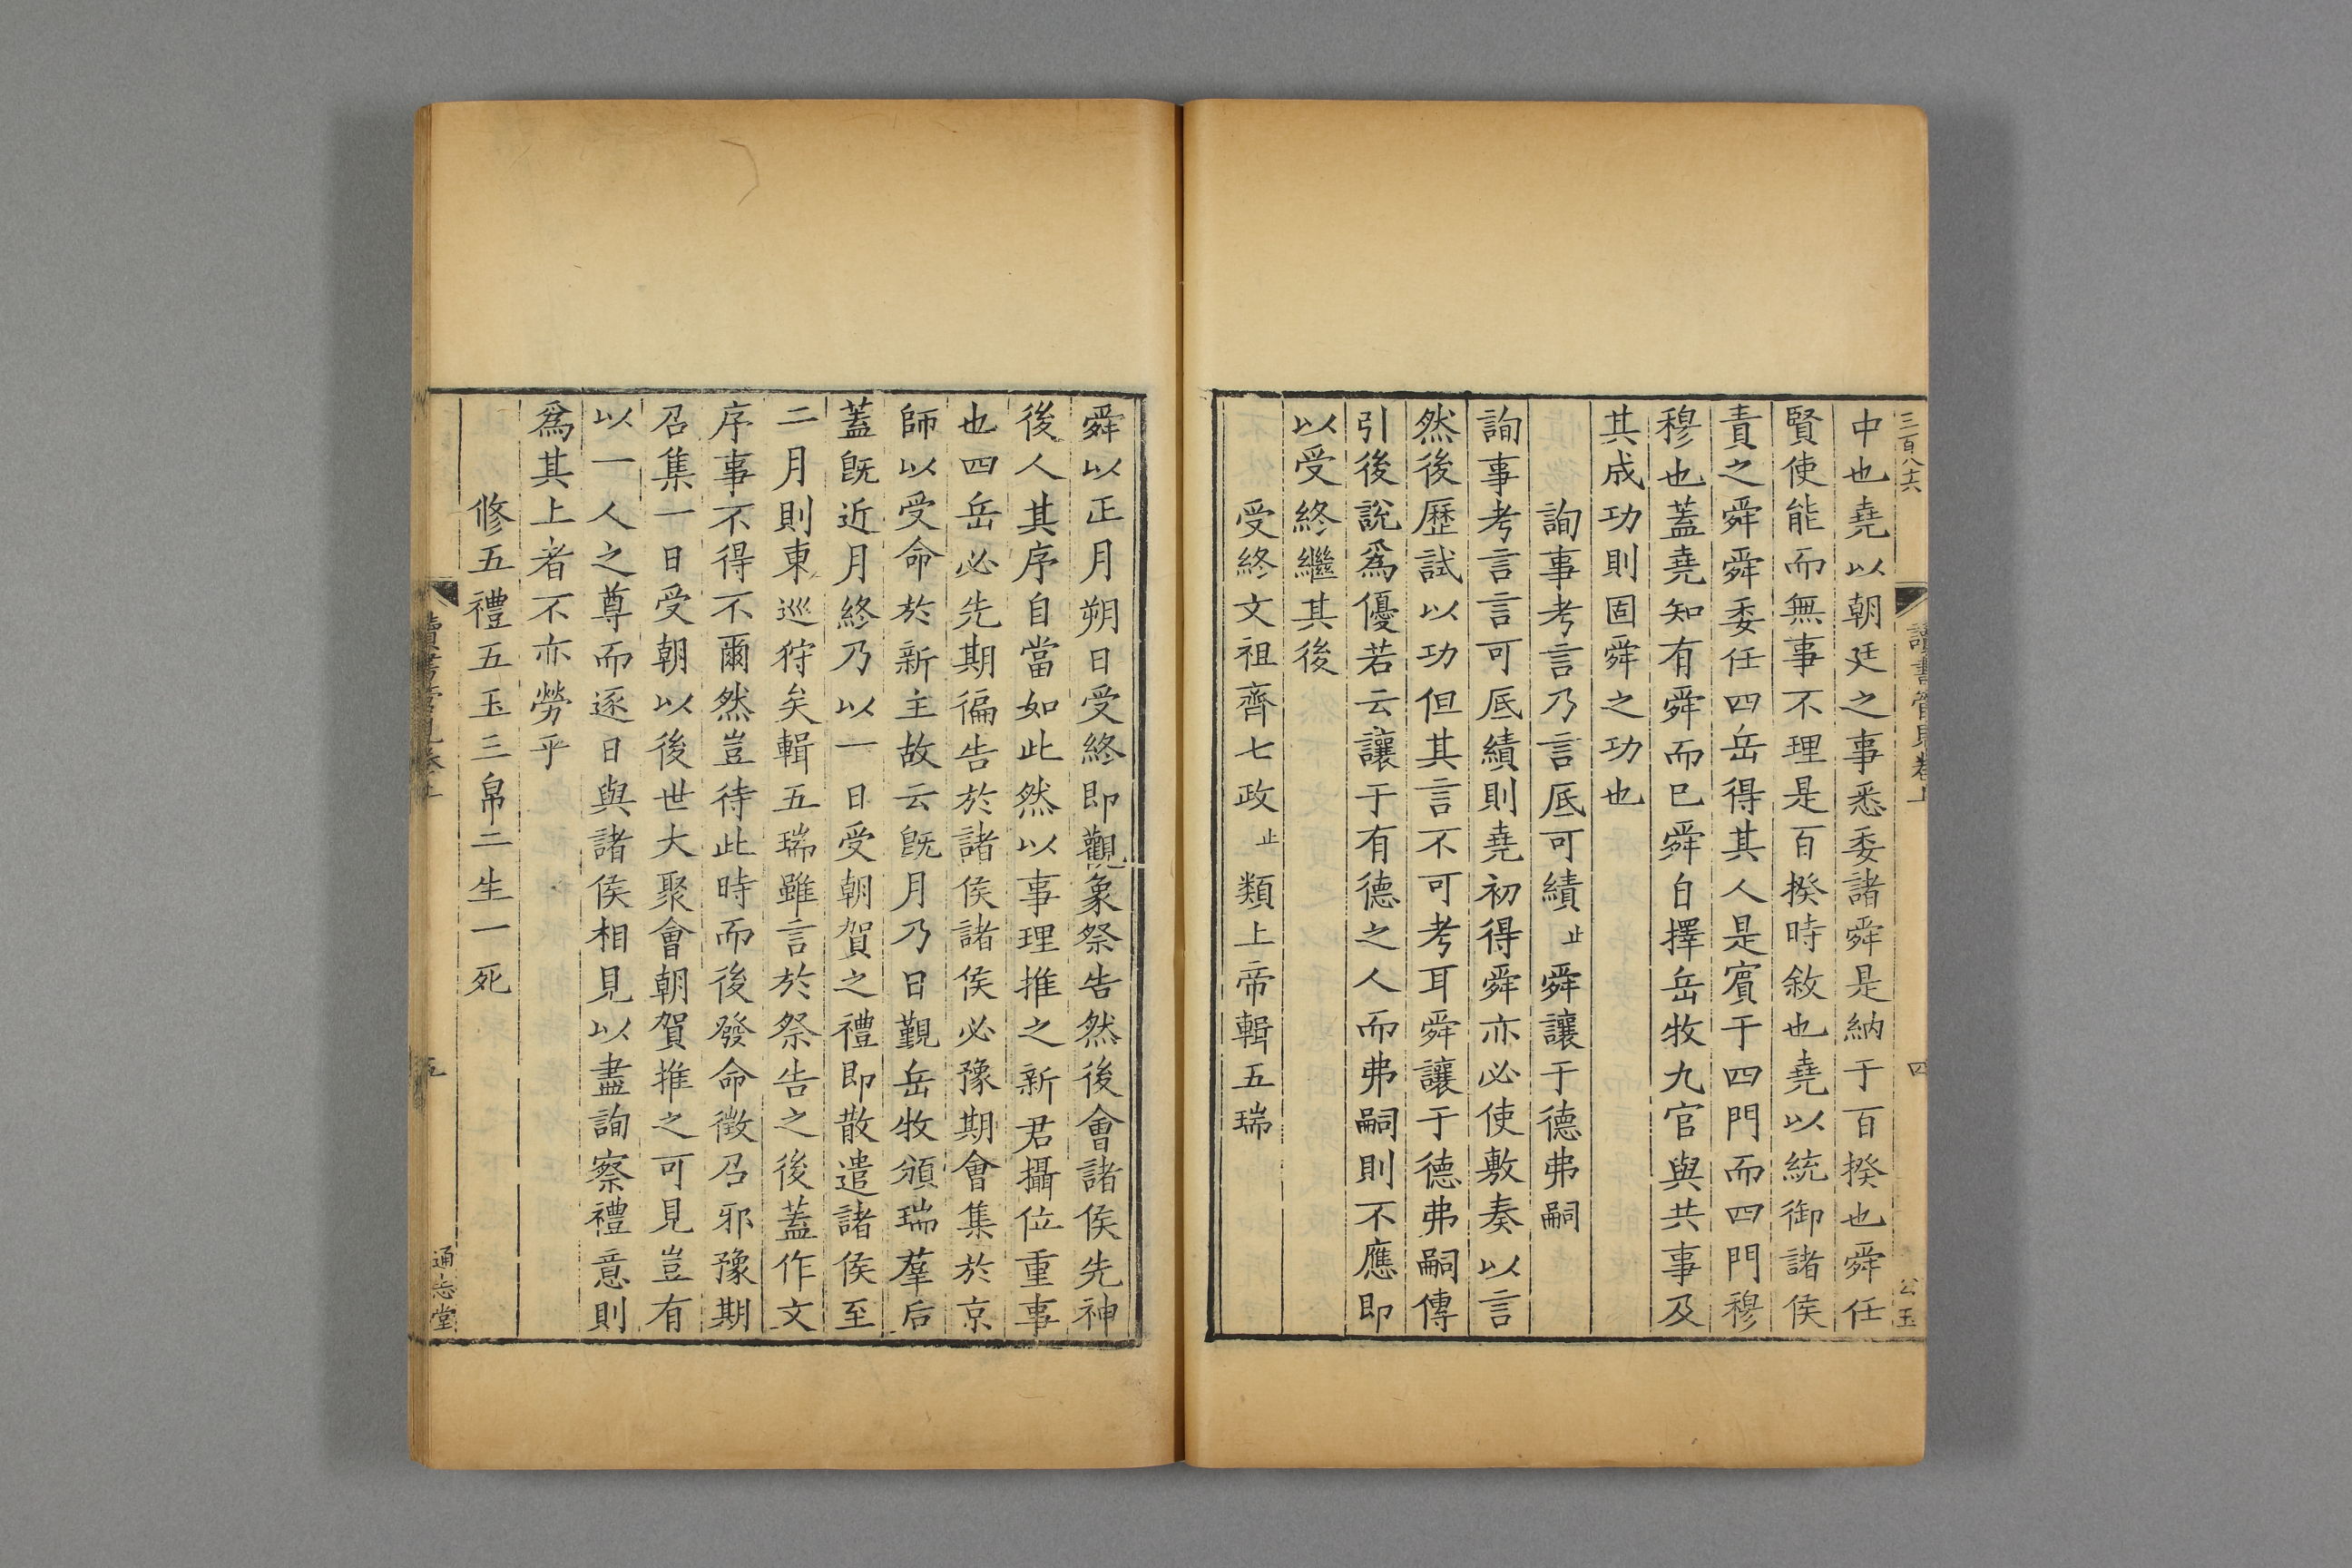 三百八十六
讀書管見卷上
四
公玉
中也堯以朝廷之事悉委諸舜是納于百揆也舜任
賢使能而無事不理是百揆時敘也堯以統御諸侯
責之舜舜委任四岳得其人是賓于四門而四門穆
穆也蓋堯知有舜而已舜自擇岳牧九官與共事及
其成功則固舜之功也
詢事考言乃言底可績止舜讓于德弗嗣
詢事考言言可底績則堯初得舜亦必使敷奏以言
然後歷試以功但其言不可考耳舜讓于德弗嗣傳
引後說爲優若云讓于有德之人而弗嗣則不應即
以受終繼其後
受終文祖齊七政止類上帝輯五瑞
舜以正月朔日受終即觀象祭告然後會諸侯先神
後人其序自當如此然以事理推之新君攝位重事
也四岳必先期徧告於諸侯諸侯必豫期會集於京
師以受命於新主故云旣月乃日覲岳牧頒瑞羣后
蓋旣近月終乃以一日受朝賀之禮即散遣諸侯至
二月則東巡狩矣輯五瑞雖言於祭告之後蓋作文
序事不得不爾然豈待此時而後發命徵召邪豫期
召集一日受朝以後世大聚會朝賀推之可見豈有
以一人之尊而逐日與諸侯相見以盡詢察禮意則
爲其上者不亦勞乎
修五禮五玉三帛二生一死
讀書管見卷上
五
通志堂